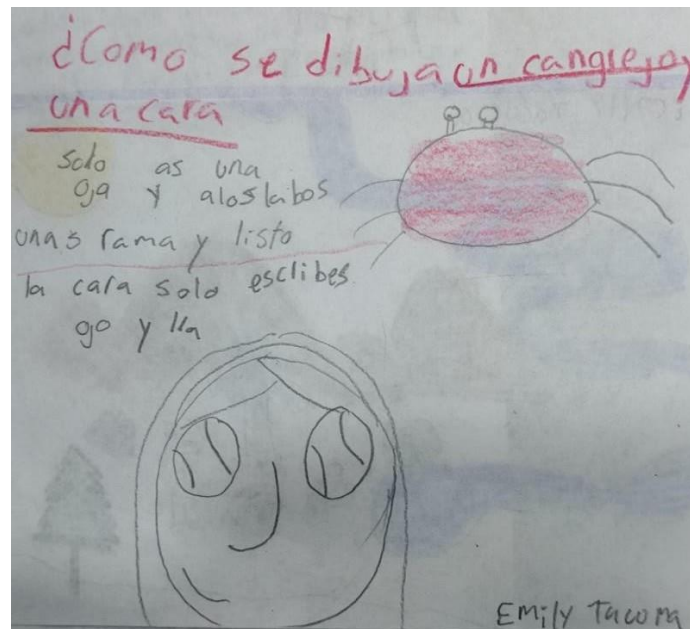 ¿Como se dibuja un cangrejo y
una cara
solo as una
oja y a los labos
unas rama y listo
la cara solo esclibes
go y lla
Emily Tacoma